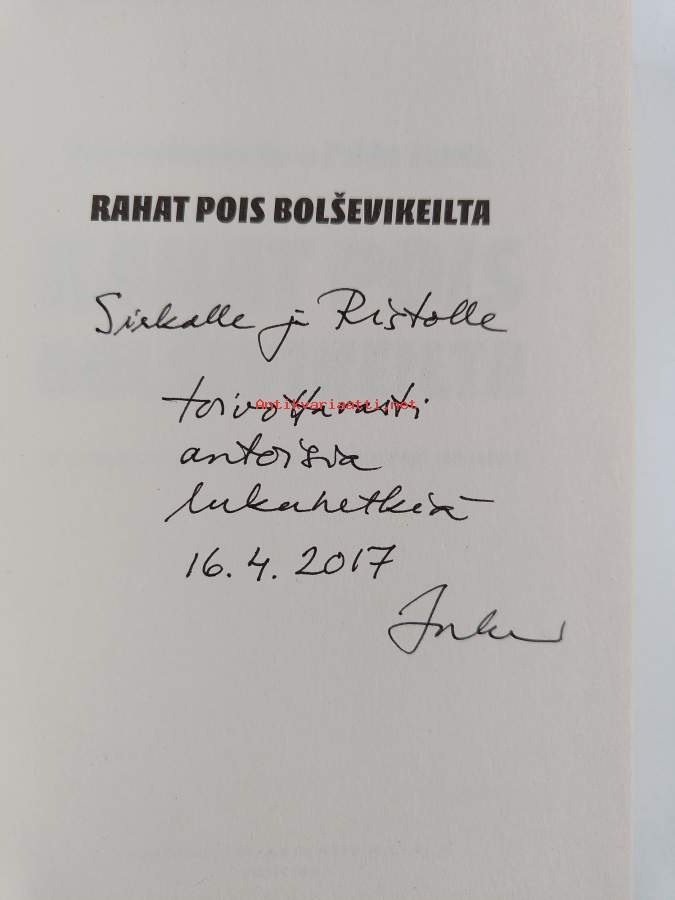 RAHAT POIS BOLŠEVIKEILTA
Sirkalle ja Ristolle
toivottavasti
Antikvariaatti.net
antoisia
lukuhetkiä
16.4.2017